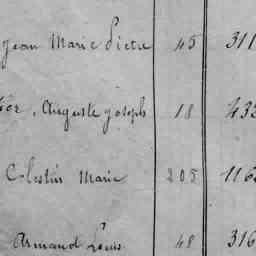 Jean Marie Pierre 45 311
Auguste Joseph 18 433
Célestin Marie 205 116
Armand Louis 48 316